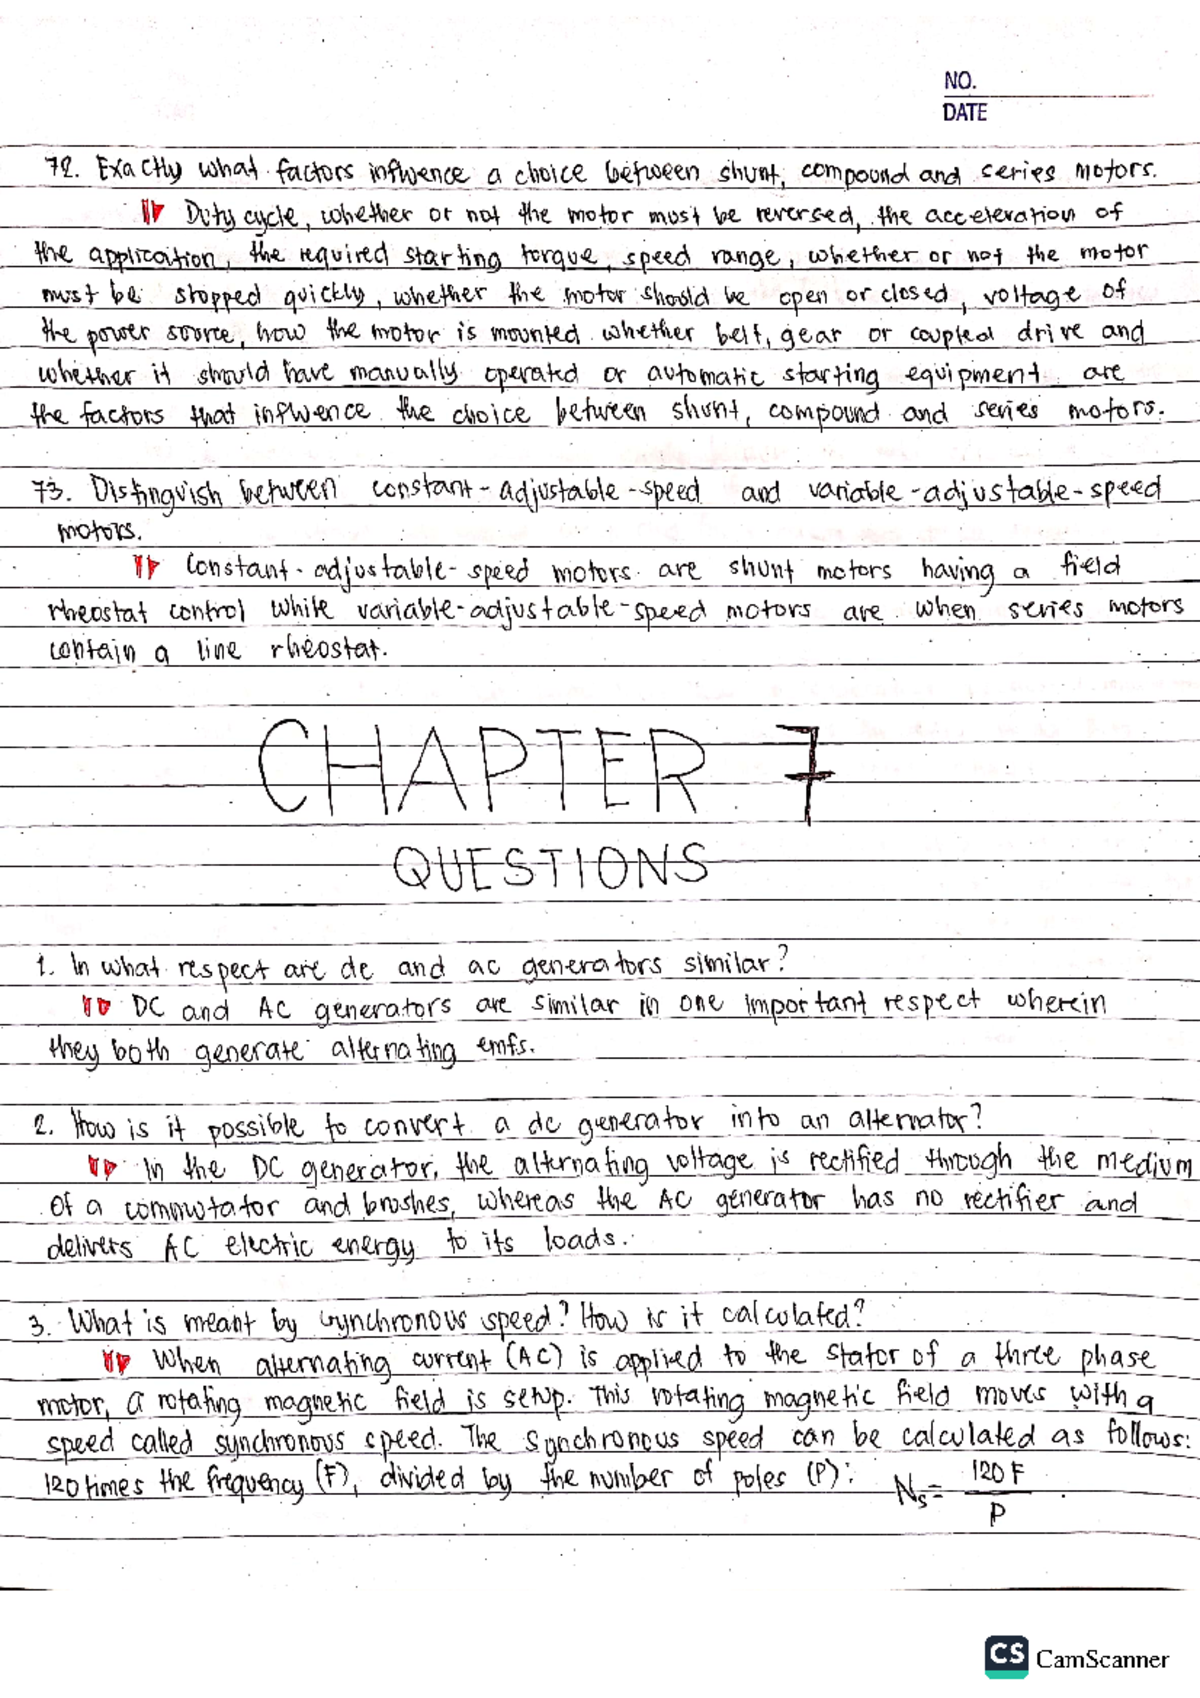 NO.
DATE
72. Exactly what factors influence a choice between shunt, compound and series motors.
Duty cycle, whether or not the motor must be reversed, the acceleration of
the application, the required starting torque, speed range, whether or not the motor
must be stopped quickly, whether the motor should be open or closed, voltage of
the power source, how the motor is mounted whether belt, gear or coupled drive and
whether it should have manually operated or automatic starting equipment are
the factors that influence the choice between shunt, compound and series motors.
73. Distinguish between constant-adjustable-speed and variable-adjustable-speed
motors.
Constant-adjustable-speed motors are shunt motors having a field
rheostat control while variable-adjustable-speed motors are when series motors
contain a line rheostat.
CHAPTER 7
QUESTIONS
1. In what respect are dc and ac generators similar?
DC and AC generators are similar in one important respect wherein
they both generate alternating emfs.
2. How is it possible to convert a dc generator into an alternator?
In the DC generator, the alternating voltage is rectified through the medium
of a commutator and brushes, whereas the AC generator has no rectifier and
delivers AC electric energy to its loads.
3. What is meant by synchronous speed? How is it calculated?
When alternating current (AC) is applied to the stator of a three phase
motor, a rotating magnetic field is setup. This rotating magnetic field moves with a
speed called synchronous speed. The synchronous speed can be calculated as follows:
120 times the frequency (F), divided by the number of poles (P): Ns = 120F / P
CS CamScanner